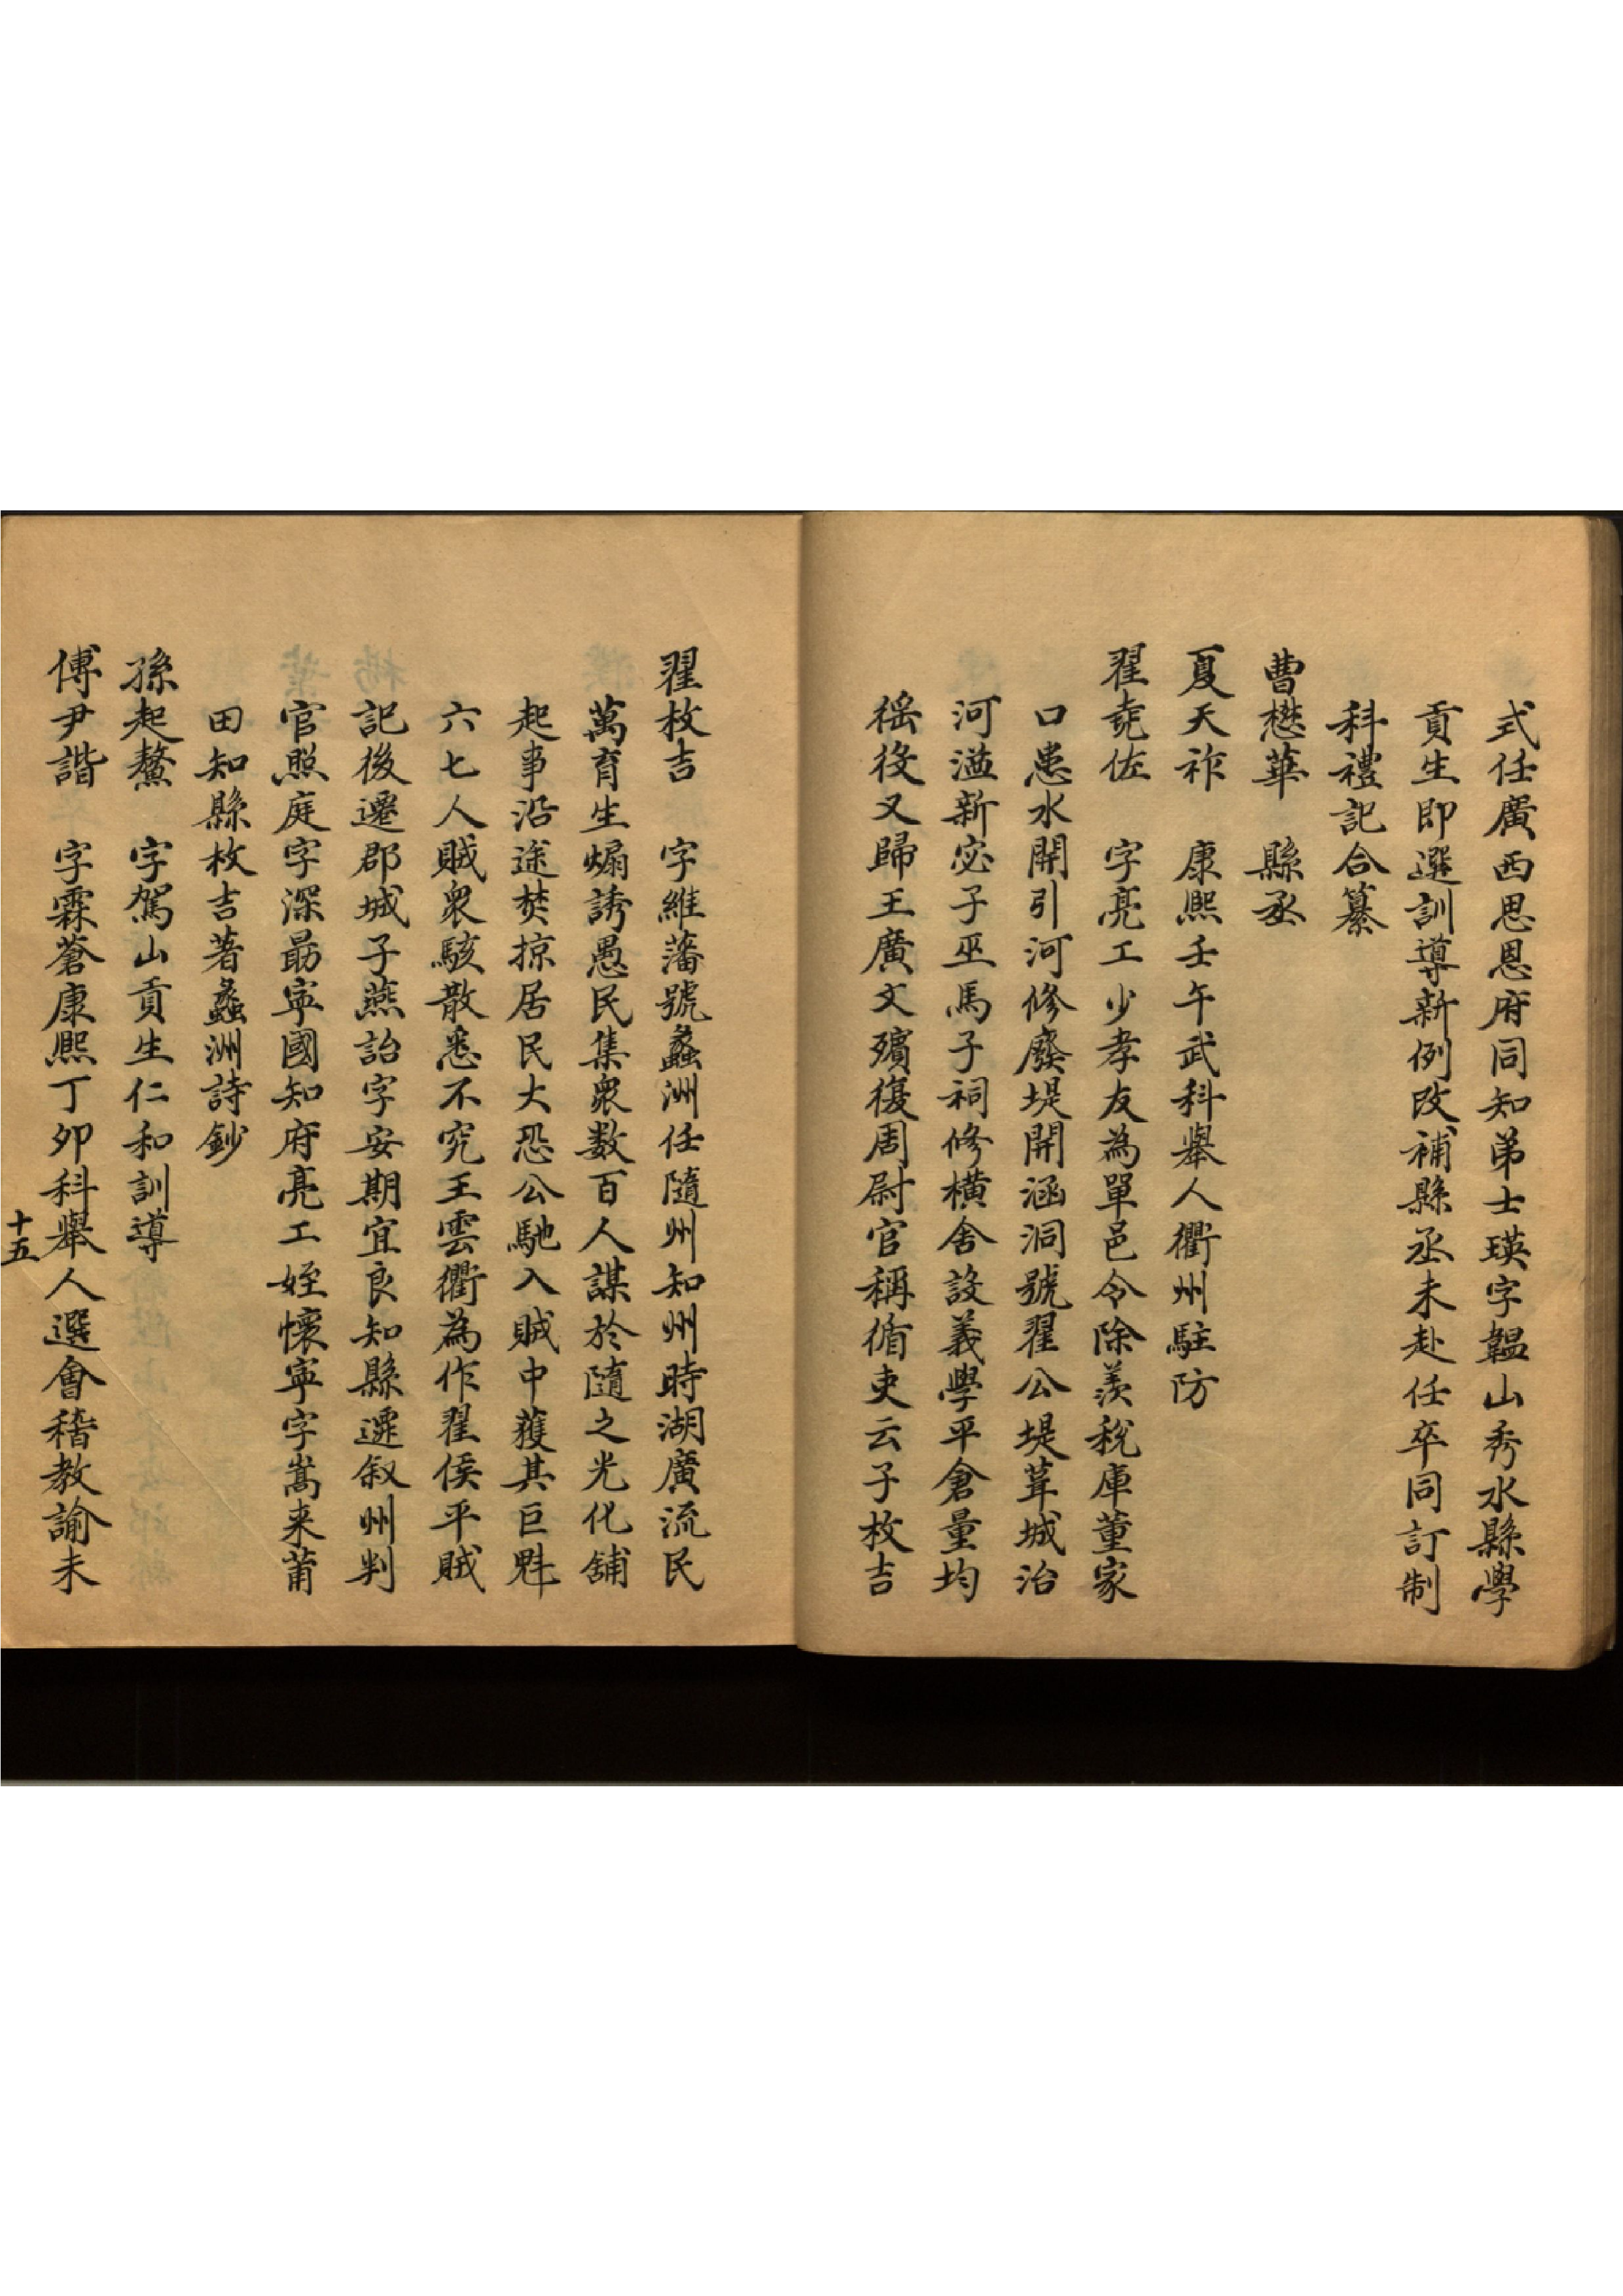 式任廣西思恩府同知弟士瑛字韞山秀水縣學
貢生即選訓導新例改補縣丞未赴任卒同訂制
科禮記合纂
曹懋華　縣丞
夏天祚　康熙壬午武科舉人衢州駐防
翟堯佐　字亮工少孝友為單邑令除羨稅庫董家
口患水開引河修廢堤開涵洞號翟公堤葺城治
河溢新宓子巫馬子祠修橫舍設義學平倉量均
徭役又歸王廣文殯復周尉官稱循吏云子枚吉
翟枚吉　字維藩號蠡洲任隨州知州時湖廣流民
萬育生煽誘愚民集衆数百人謀於隨之光化舖
起事沿途焚掠居民大恐公馳入賊中獲其巨魁
六七人賊衆駭散悉不究王雲衢為作翟侯平賊
記後遷郡城子燕詒字安期宜良知縣遜叙州判
官照庭字深勗寜國知府亮工姪懷寜字嵩来莆
田知縣枚吉著蠡洲詩鈔
孫起鰲　字駕山貢生仁和訓導
傅尹諧　字霖蒼康熙丁夘科舉人選會稽教諭未
十五